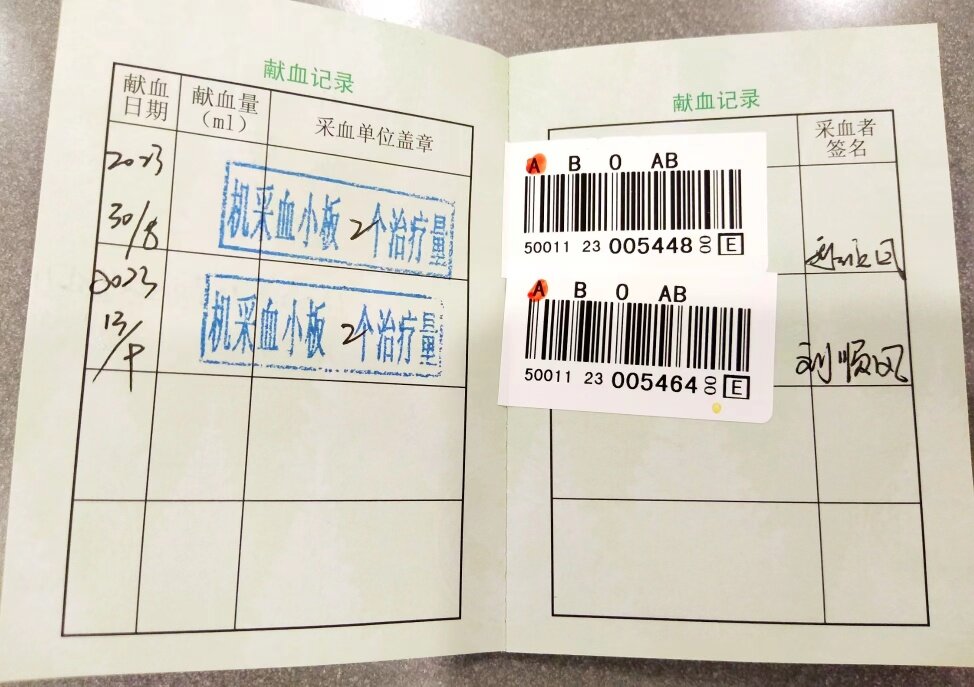 献血记录
献血
日期
献血量
（ml）
采血单位盖章
2023
30/8
机采血小板 2个治疗量
2023
13/9
机采血小板 2个治疗量
献血记录
采血者
签名
A B O AB
50011 23 005448 00 E
A B O AB
50011 23 005464 00 E
刘顺风